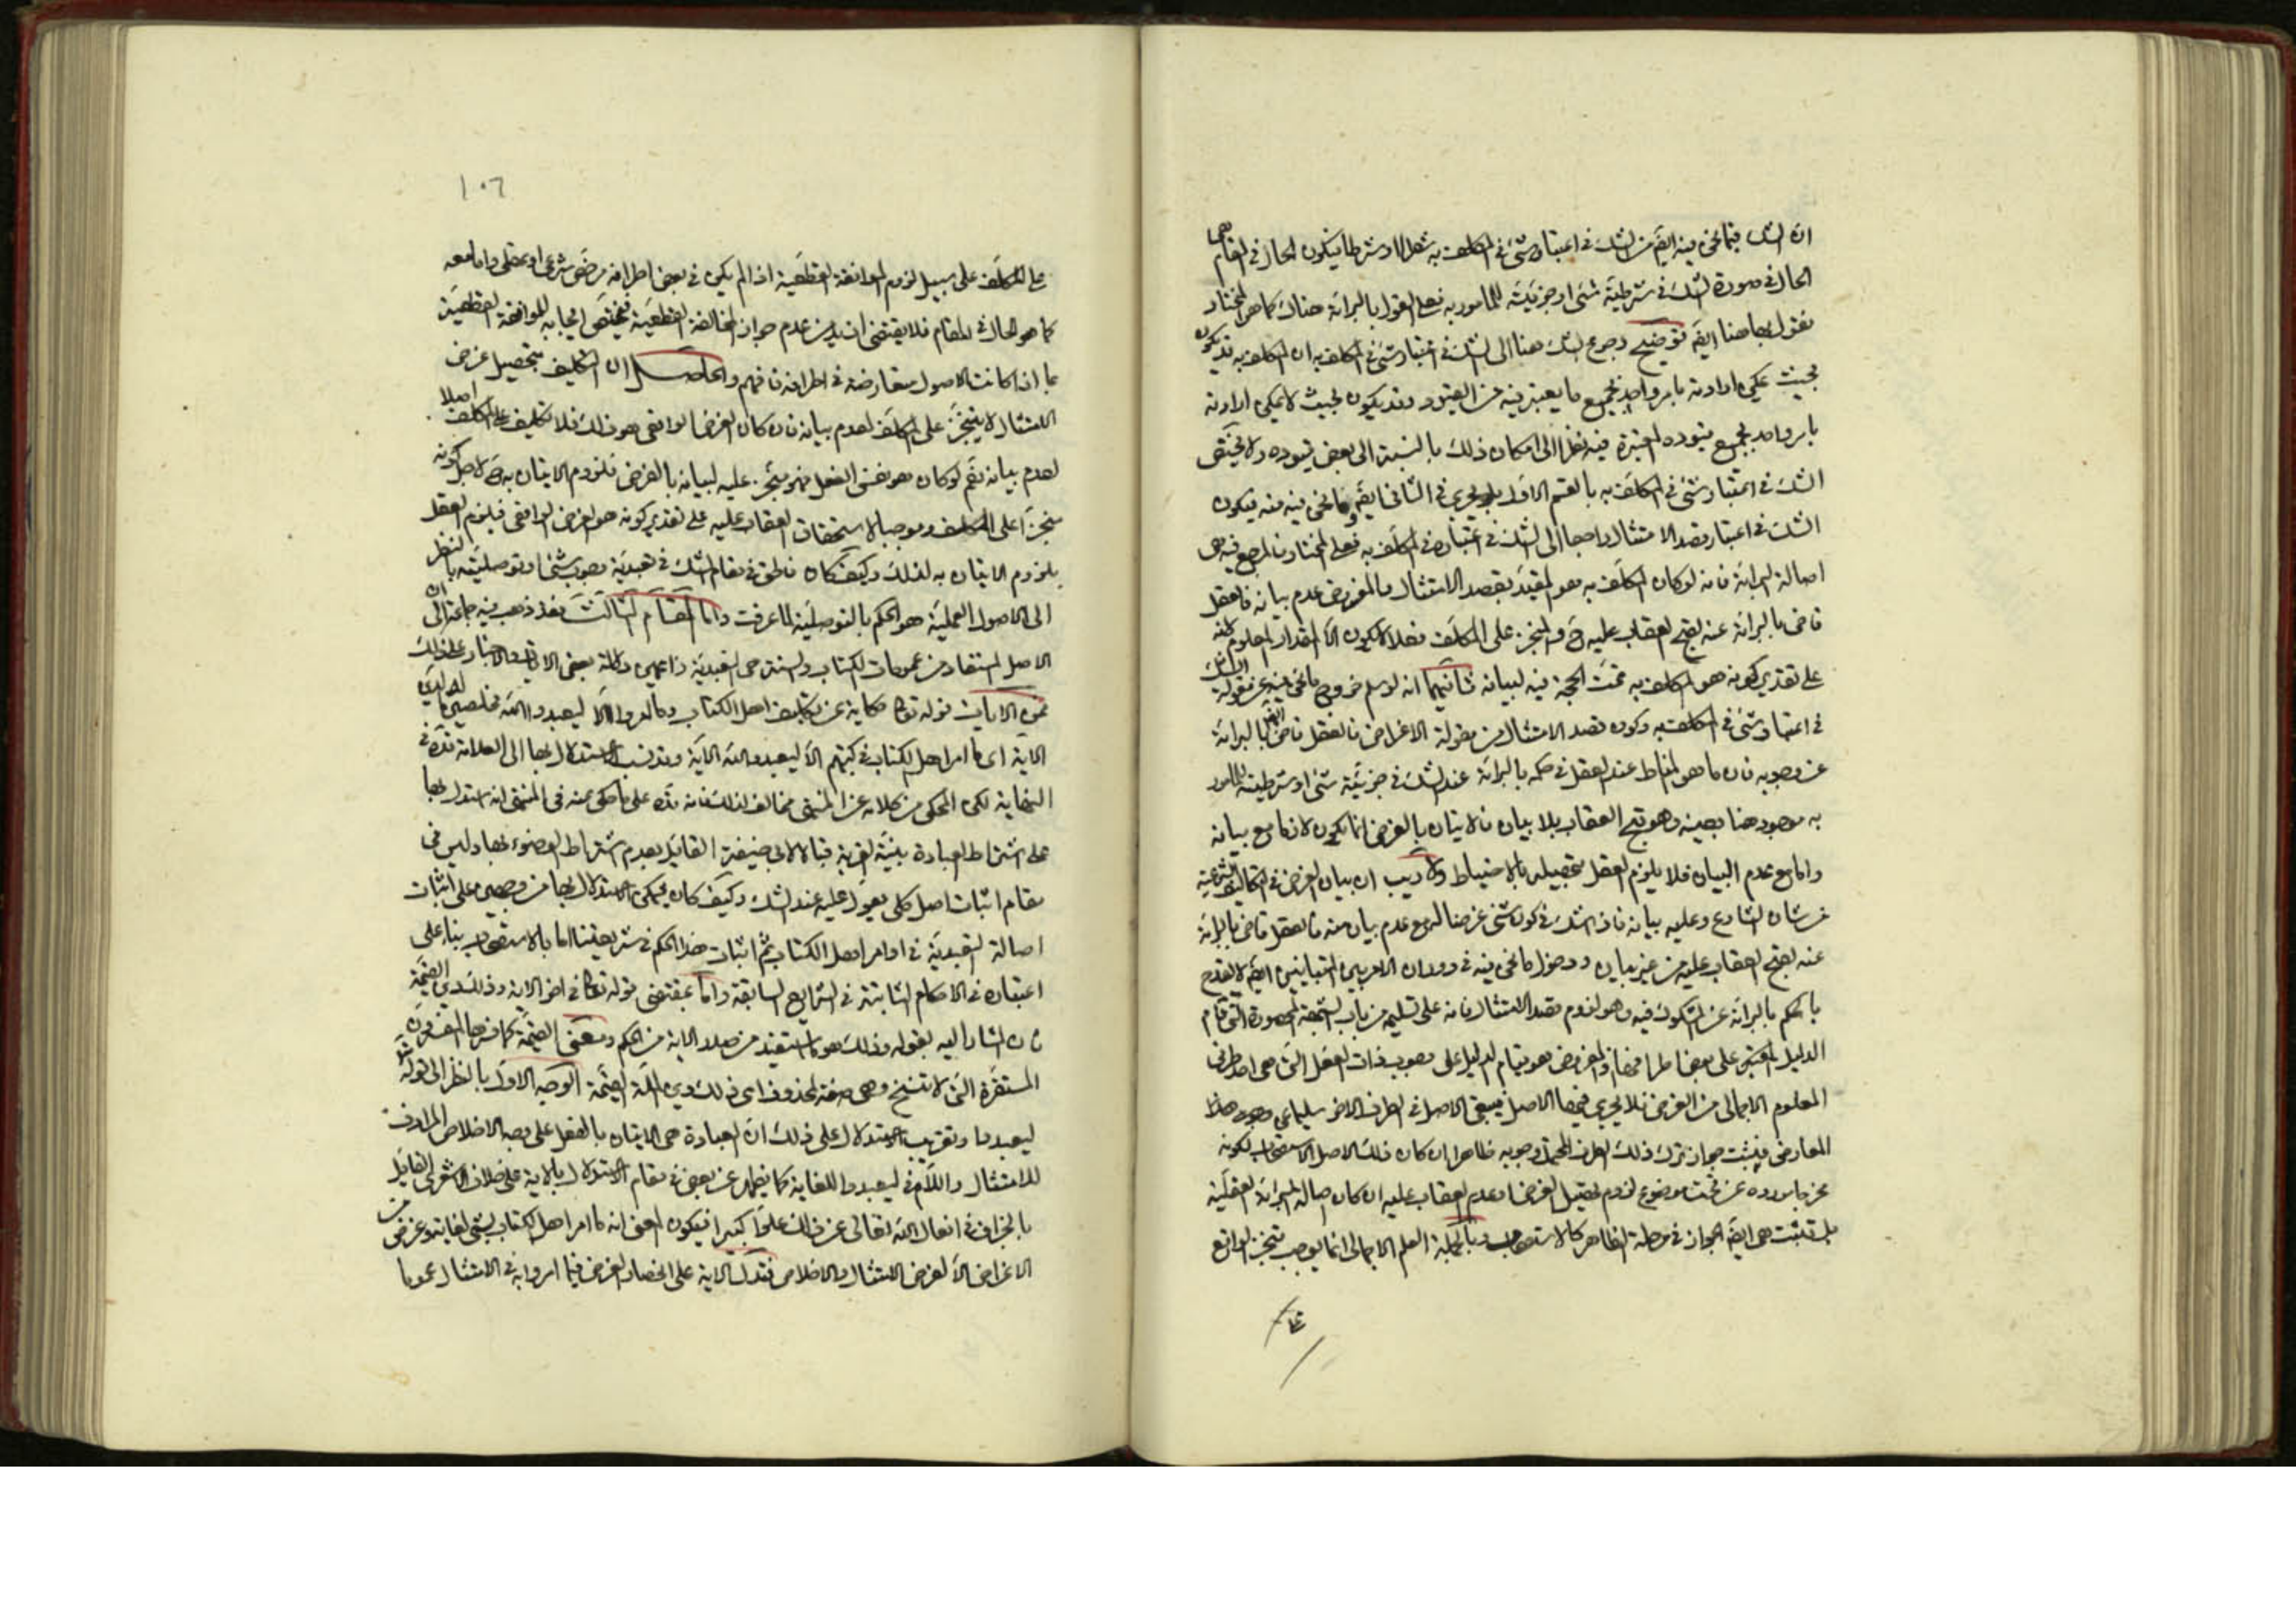 ان الشك فيما نحن فيه ايضَ من الشك فى اعتبار شئ فى المكلف به شطرا او شرطا فيكون الحال فى المقام هى
الحال فى صورة الشك فى شرطية شئ او جزئيته للمامور به فعلى القول بالبرائة هناك كما هو المختار
نقول بها هنا ايضَ توضيح رجوع الشك هنا الى الشك فى اعتبار شئ فى المكلف به ان المكلف به قد يكون
بحيث يمكن ارادته بامر واحد بجميع ما يعتبر فيه من القيود وقد يكون بحيث لا يمكن ارادته
بامر واحد بجميع قيوده المعتبرة فيه نظرا الى امكان ذلك بالنسبة الى بعض قيوده ولا يختص
الشك فى اعتبار شئ فى المكلف به بالقسم الاول بل يجرى فى الثانى ايضَ وما نحن فيه منه فيكون
الشك فى اعتبار قصد الامتثال راجعا الى الشك فى اعتباره فى المكلف به فعلى المختار فالمرجع فيه هى
اصالة البرائة فانه لو كان المكلف به هو المقيد بقصد الامتثال والمفروض عدم بيانه فالعقل
قاض بالبرائة عنه لقبح العقاب عليه حَ والمنجز على المكلف فعلا لا يكون الا المقدار المعلوم لانه
على تقدير كونه هو المكلف به تمت الحجة فيه لبيانه ثانيهما انه لو سلم خروج ما نحن فيه عن مقولة الشك
فى اعتبار شئ فى المكلف به وكون قصد الامتثال من مقولة الاغراض فالعقل قاض ايضَ بالبرائة
عن وجوبه فان ما هو المناط عند العقل فى حكمه بالبرائة عند الشك فى جزئية شئ او شرطيته للمامور
به موجود هنا بعينه وهو قبح العقاب بلا بيان فالاتيان بالغرض انما يكون لازما مع بيانه
واما مع عدم البيان فلا يلزم العقل بتحصيله بالاحتياط ولا ريب ان بيان الغرض فى التكاليف الشرعية
من شان الشارع وعليه بيانه فاذا شك فى كون شئ غرضا له مع عدم بيان منه فالعقل قاض بالبرائة
عنه لقبح العقاب عليه من غير بيان ودخول ما نحن فيه فى دوران الامر بين المتباينين ايضَ لا يقدح
بالحكم بالبرائة عن المشكوك فيه وهو لزوم قصد الامتثال فانه على تسليمه من باب الشبهة المحصورة التى قام
الدليل المعتبر على بعض اطرافها اذ المفروض هو قيام الدليل على وجوب ذات الفعل التى هى احد طرفى
المعلوم الاجمالى من الغرض فلا يجرى فيها الاصل فيبقى الاصل فى الطرف الاخر سليما عن وجود هذا
المعارض فيثبت جواز ترك ذلك الطرف المحتمل وجوبه ظاهرا ان كان ذلك الاصل الاستصحاب لكونه
مخرجا مورده عن تحت موضوع لزوم تحصيل الغرض وعدم العقاب عليه ان كان اصالة البرائة العقلية
بل تثبت هى ايضَ الجواز فى مرحلة الظاهر كالاستصحاب وبالجملة العلم الاجمالى انما يوجب تنجز الواقع
١٠٦
على المكلف على سبيل لزوم الموافقة القطعية اذا لم يكن فى بعض اطرافه مرخص شرعى او عقلى واما معه
كما هو الحال فى المقام فلا يقتضى ازيد من عدم جواز المخالفة القطعية فيختص ايجابه للموافقة القطعية
بما اذا كانت الاصول متعارضة فى اطرافه فافهم والحاصل ان التكليف بتحصيل غرض
الامتثال لا يتنجز على المكلف لعدم بيانه فان كان الغرض الواقعى هو ذلك فلا تكليف على المكلف اصلا
لعدم بيانه نعم لو كان هو نفس الفعل فهو منجز عليه لبيانه بالفرض فلزوم الاتيان به حَ لاجل كونه
منجزا على المكلف وموجبا لاستحقاق العقاب عليه على تقدير كونه هو الغرض الواقعى فيلزم العقل
بلزوم الاتيان به لذلك وكيف كان فالحق فى مقام الشك فى تعبدية وجوب شئ او توصليته بالنظر
الى الاصول العملية هو الحكم بالتوصلية لما عرفت واما المقام الثالث فقد ذهب فيه جماعة الى ان
الاصل المستفاد من عمومات الكتاب والسنة هى التعبدية زاعمين دلالة بعض الايات والاخبار على ذلك
فمن الايات قوله تعالى حكاية عن تكليف اهل الكتاب وما امروا الا ليعبدوا الله مخلصين له الدين
الاية اى ما امر اهل الكتاب فى كتبهم الا ليعبدوا الله الاية وقد نسب الاستدلال بها الى العلامة قدّه فى
النهاية لكن المحكى من كلامه عن المنتهى مخالف لذلك فانه قدّه على ما حكى عنه فى المنتهى انه استدل بها
على اشتراط العبادة بنية القربة قبالا لابى حنيفة القائل بعدم اشتراط الوضوء بها وليس فى
مقام اثبات اصل كلى يعول عليه عند الشك وكيف كان يمكن الاستدلال بها من وجهين على اثبات
اصالة التعبدية فى اوامر اهل الكتاب ثم اثبات هذا الحكم فى شريعتنا اما بالاستصحاب بناء على
اعتباره فى الاحكام الثابتة فى الشرايع السابقة واما بمقتضى قوله تعالى فى اخر الاية وذلك دين القيمة
فان المشار اليه بقوله وذلك هو ما استفيد من صدر الاية من الحكم ومعنى القيمة كما فسرها المفسرون
المستقرة التى لا تنسخ وهى صفة لمحذوف اى ذلك دين الملة القيمة الوجه الاول بالنظر الى قوله تعَ
ليعبدوا وتقريب الاستدلال على ذلك ان العبادة هى الاتيان بالفعل على وجه الاخلاص المرادف
للامتثال واللام فى ليعبدوا للغاية كما يظهر عن بعض فى مقام الاستدلال بالاية على خلاف الاشعرى القائل
بالجزاف فى افعال الله تعالى عن ذلك علوا كبيرا فيكون المعنى انه ما امر اهل الكتاب بشئ لغاية وغرض من
الاغراض الا لغرض الامتثال والاخلاص فتدل الاية على انحصار الغرض فيما امروا به فى الامتثال عموما